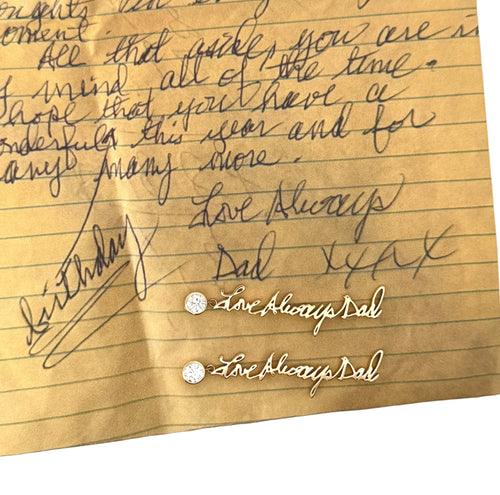 oughts
oment.
All that aside, you are in
mind all of the time.
hope that you have a
onderful this year and for
any many more.
Love Always
Dad XXXX
birthday
Love Always Dad
Love Always Dad